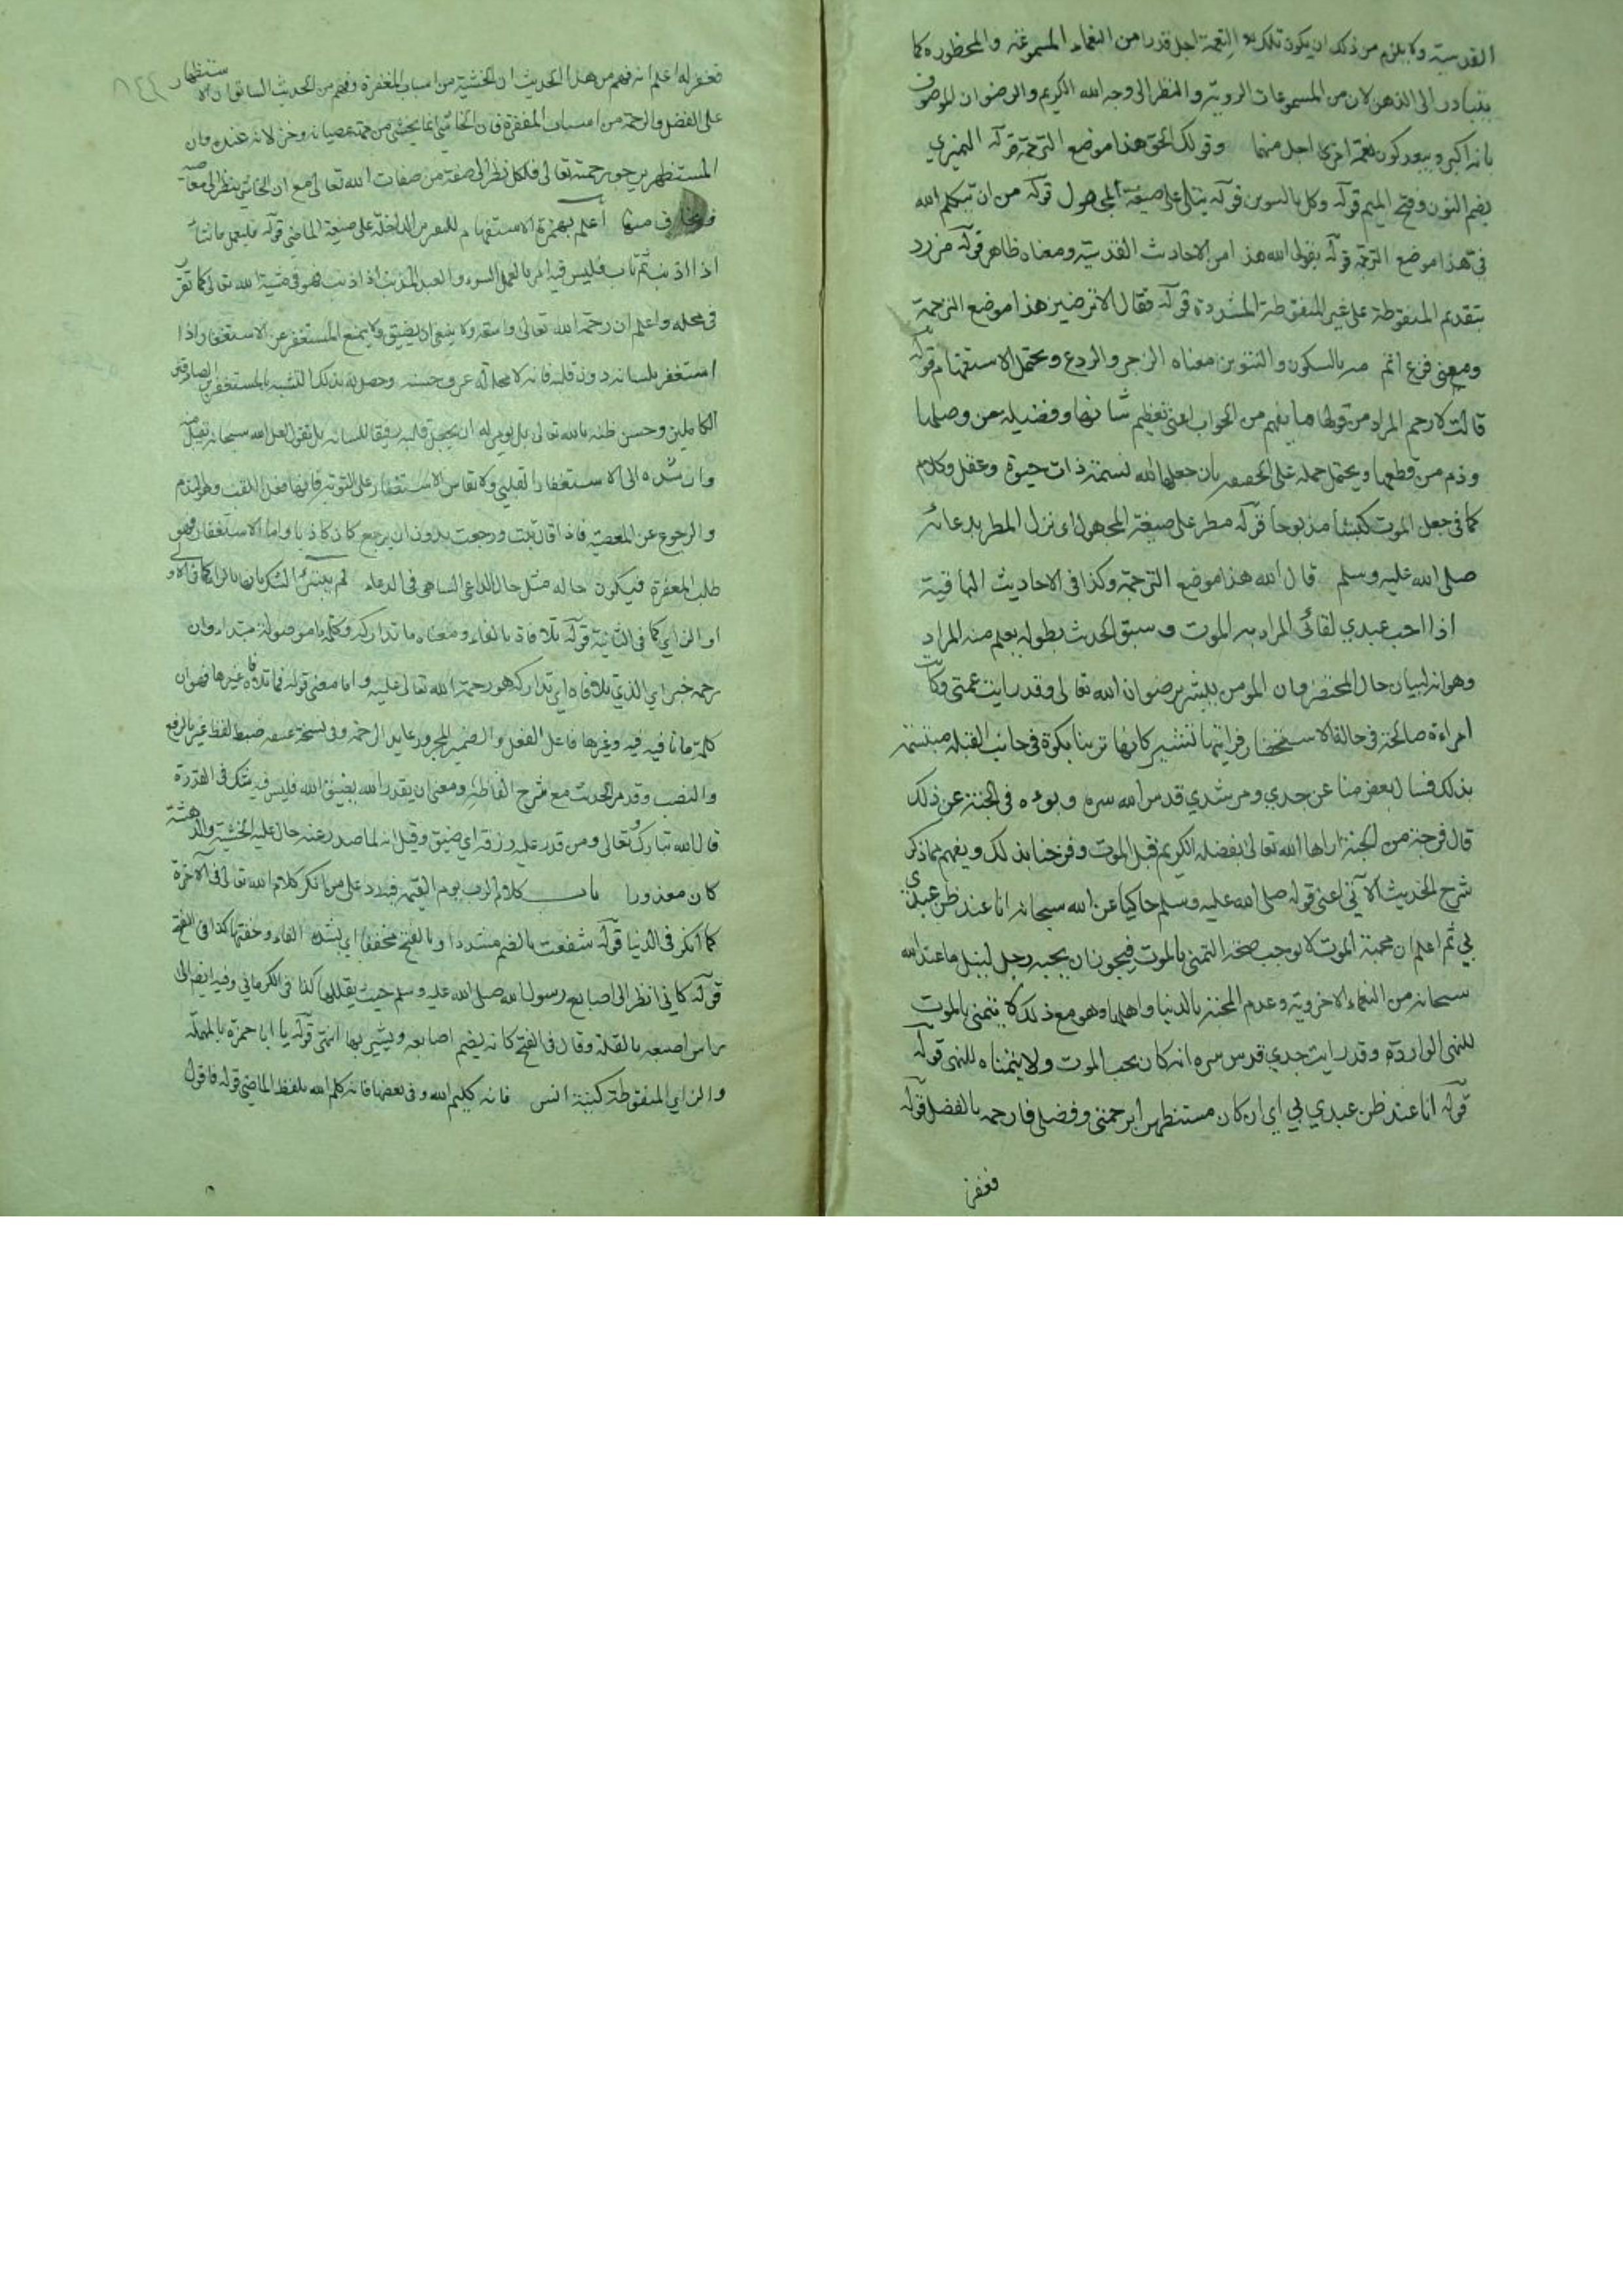 القدسية ولا يلزم من ذلك ان يكون تلك النعمة اجل قدرا من النعماء المسموعة والمحظوره كما
يتبادر الى الذهن لان من المسموعات الروية والنظر الى وجه الله الكريم والرضوان الموصوف
بانه اكبر ويبعد كون نعمة اخرى اجل منهما وقولك الحق هذا موضع الترجمة قوله النميري
بضم النون وفتح الميم قوله وكل بالتنوين قوله يتلى على صيغة المجهول قوله من ان يتكلم الله
في هذا موضع الترجمة قوله يقول الله هذا من الاحاديث القدسية ومعناه ظاهر قوله مزرد
بتقديم المنقوطة على غير المنقوطة المشددة قوله فقال الا ترضين هذا موضع الترجمة
ومعنى فرغ اتم مه بالسكون والتنوين معناه الزجر والردع ويحتمل الاستفهام قوله
قالت الرحم المراد من قولها ما يفهم من الجواب اعني تعظيم شانها وفضيلة من وصلها
وذم من قطعها ويحتمل حمله على الحقيقة بان جعلها الله نسمة ذات حيوة وعقل وكلام
كما في جعل الموت كبشا مذبوحا قوله مطر على صيغة المجهول اي نزل المطر بدعائه
صلى الله عليه وسلم قال الله هذا موضع الترجمة وكذا في الاحاديث الباقية
اذا احب عبدي لقائي المراد به الموت وسبق الحدث بطوله يعلم منه المراد
وهو انه لبيان حال المحتضر وان المومن يبشر برضوان الله تعالى وقد رايت عمتي وكانت
امراءة صالحة في حالة الاستحضار فرايتها تشير كانها ترينا بكوة في جانب القبلة مبتسمة
بذلك فسال بعض منا عن جدي ومرشدي قدس الله سره وبوءه في الجنة عن ذلك
قال فرجة من الجنة اراها الله تعالى بفضله الكريم قبل الموت وفرحنا بذلك ويفهم مما ذكر
شرح الحديث الآتي اعني قوله صلى الله عليه وسلم حاكيا عن الله سبحانه انا عند ظن عبدي
بي ثم اعلم ان محبة الموت لا يوجب صحة التمني بالموت فيجوز ان يحبه رجل لنيل ما عند الله
سبحانه من النعماء الاخروية وعدم المحبة بالدنيا واهلها وهو مع ذلك لا يتمنى بالموت
للنهي الواردة وقد رايت جدي قدس سره انه كان يحب الموت ولا يتمناه للنهي قوله
قوله انا عند ظن عبدي بي اي ان كان مستظهرا برحمتي وفضلي فارحمه بالفضل قوله
فغفر
فغفر له اعلم انه فهم من هذا الحديث ان الخشية من اسباب المغفرة وفهم من الحديث السابق ان الاستظهار
على الفضل والرحمة من اسباب المغفرة فان الخاشي انما يخشى من جهة عصيانه وخزلانه عنده وان
المستظهر يرجو رحمته تعالى فلكل نظر الى صفة من صفات الله تعالى مع ان الخائي ينظر الى معاصيه
منها اعلم بهمزة الاستفهام الداخلة على صيغة الماضي قوله فليعمل ما شاء
اذا اذنب ثم تاب فليس فيه امر بالعمل السوء والعبد المذنب اذا اذنب فهو في مشية الله تعالى كما تقرر
في محله واعلم ان رحمة الله تعالى واسعة ولا ينبغي ان يضيق ولا يمنع المستغفر عن الاستغفار واذا
استغفر بلسانه دون قلبه فانه لا محالة له عن حسنة وحصل له بذلك التشبه بالمستغفرين الصادقين
الكاملين وحسن ظنه بالله تعالى بل يومر له ان يجعل قلبه رفيقا للسانه بل نقول لعل الله سبحانه يقبل منه
وارشده الى الاستغفار القلبي ولا يقاس الاستغفار على التوبة فانها فعل القلب وهو الندم
والرجوع عن المعصية فاذا قال تبت ورجعت بدون ان يرجع كان كاذبا واما الاستغفار فهو
طلب المغفرة فيكون حاله مثل حال الداعي الساهي في الدعاء لم يبتئر الشك بانها بالراء كما في الاولى
او الزاي كما في الثانية قوله تلافاه بالفاء ومعناه ما تداركه وكلمة ما موصولة مبتداء وان
رحمه خبر اي الذي تلافاه اي تداركه هو رحمة الله تعالى عليه واما معنى قوله فما تلافاه غيرها فهو ان
كلمة ما نافية فيه وغيرها فاعل الفعل والضمير المجرور عايد الى الرحمة وفي نسخة عتيقه ضبط لفظ غير بالرفع
والنصب وقد مر الحديث مع شرح الفاظه ومعنى ان يقدر الله يضيق الله فليس فيه شك في القدرة
قال الله تبارك وتعالى ومن قدر عليه رزقه اي ضيق وقيل انه لما صدر عنه حال عليه الخشية والدهشة
كان معذورا باب كلام الرب يوم القيمة فيه رد على من انكر كلام الله تعالى في الآخرة
كما انكر في الدنيا قوله شفعت بالضم مشددا وبالفتح مخففا اي بشدة الفاء وخفتها كذا في الفتح
قوله كاني انظر الى اصابع رسول الله صلى الله عليه وسلم حيث يقللها كذا في الكرماني وفيه ايضا الى
راس اصبعه بالقلة وقال في الفتح كانه يضم اصابعه ويشير بها انتهى قوله يا ابا حمزة بالمهملة
والزاي المنقوطة كنية انس فانه كليم الله وفي بعضها فانه كلم الله بلفظ الماضي قوله فاقول